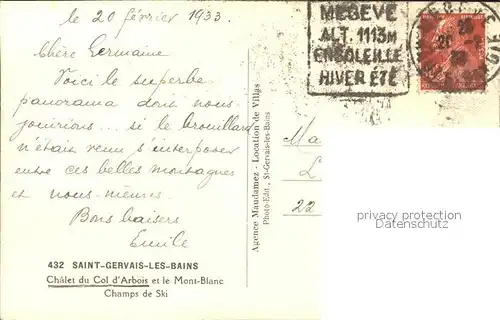 le 20 février 1933.
Chère Germaine
Voici le superbe
panorama dont nous
jouirions... si le brouillard
n'était venu s'interposer
entre ces belles montagnes
et nous-mêmes.
Bons baisers
Emile
432 SAINT-GERVAIS-LES-BAINS
Châlet du Col d'Arbois et le Mont-Blanc
Champs de Ski
Agence Maudamez - Location de Villas
Photo-Edit., St-Gervais-les-Bains
MEGEVE
ALT. 1113M
ENSOLEILLE
HIVER ÉTÉ
Ma
L
22
privacy protection
watermark